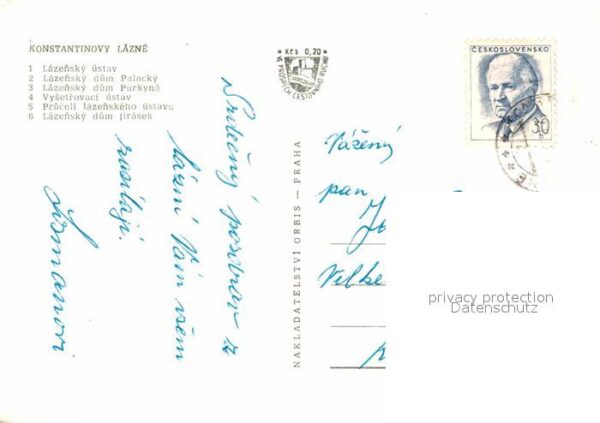 KONSTANTINOVY LÁZNĚ
1 Lázeňský ústav
2 Lázeňský dům Palacký
3 Lázeňský dům Purkyně
4 Vyšetřovací ústav
5 Průčelí lázeňského ústavu
6 Lázeňský dům Jirásek
Kčs 0,20
VE PROSPĚCH CESTOVNÍHO RUCHU
ČESKOSLOVENSKO
30
Srdečný pozdrav z
lázní Vám všem
posílají
NAKLADATELSTVÍ ORBIS — PRAHA
Vážený
pan
Velke
privacy protection
Datenschutz